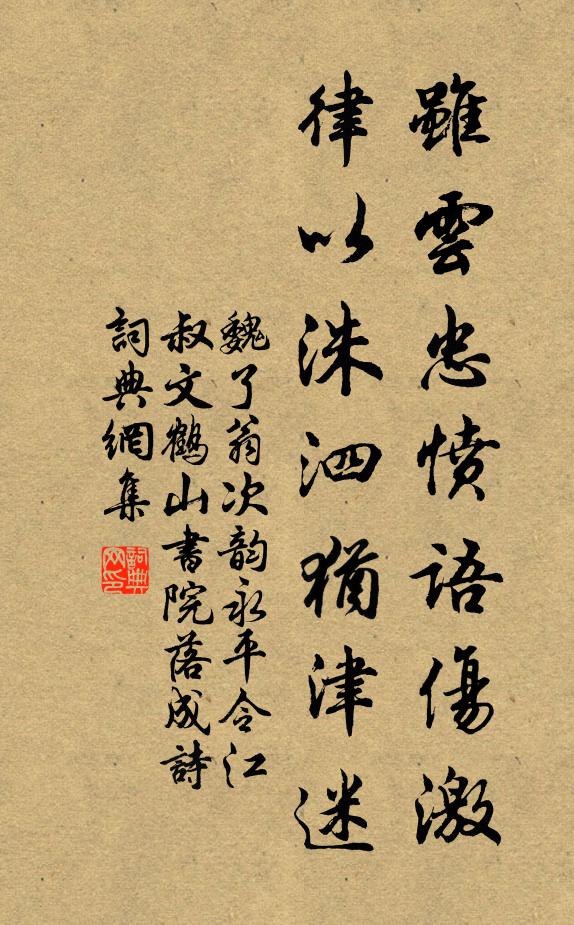 雖雲忠憤語傷激
律以洙泗猶津迷
魏了翁次韵永平令江
叔文鶴山書院落成詩
詞典網集
詞典网印